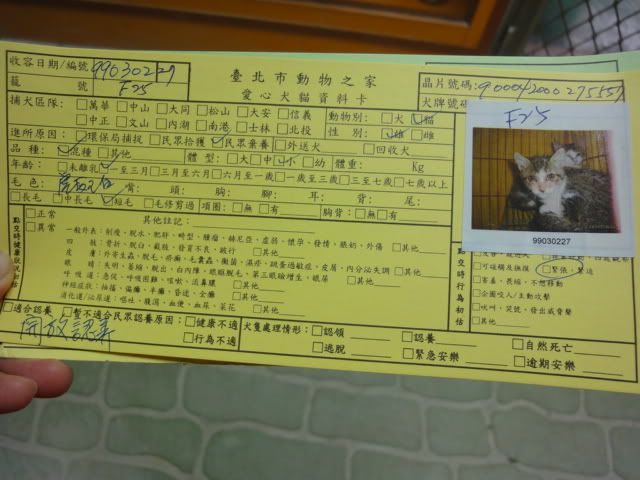 收容日期/編號 99030227
籠 號 F25
臺北市動物之家
愛心犬貓資料卡
晶片號碼:
犬牌號碼
捕犬區隊: □萬華 □中山 □大同 □松山 □大安 □信義 動物別: □犬 ☑貓
□中正 □文山 □內湖 □南港 □士林 □北投 性 別: ☑雄 □雌
進所原因: □環保局捕捉 □民眾拾獲 ☑民眾棄養 □外送犬 □回收犬
品 種: ☑混種 □其他 體 型: □大 □中 ☑小 □幼 體重: kg
年齡: □未離乳 ☑一至三月 □三至六月 □六月至一歲 □一歲至三歲 □三至七歲 □七歲以上
毛 色: 嘴: 頭: 胸: 腳: 耳: 背: 尾:
□長毛 □中長毛 ☑短毛 □毛修剪過 項圈: □無 □有 胸背: □無 □有
點交時健康狀況評估
□正常
□異常
其他註記:
一般外表:削瘦、脫水、肥胖、畸型、腫瘤、赫尼亞、虛弱、懷孕、發情、脹奶、外傷 □其他
四 肢:骨折、脫臼、截肢、發育不良、跛行 □其他
皮 膚:外寄生蟲、脫毛、疥癬、毛囊蟲、黴菌、濕疹、跳蚤過敏症、皮膚、內分泌失調 □其他
眼 睛:失明、萎縮、脫出、白內障、眼瞼脫毛、第三眼瞼增生、眼屎 □其他
呼吸道:急促、呼吸困難、咳嗽、流鼻膿 □其他
神經症狀:抽搐、偏癱、半癱、昏迷、全癱 □其他
消化道/泌尿道:嘔吐、腹瀉、血便、血尿、菜花 □其他
點交時行為初估
□可碰觸及撫摸 ☑緊張、緊迫
□害羞、畏縮、不想移動
□企圖咬人/主動攻擊
□吠叫、哭嚎、發出威脅聲
□其他
F25
99030227
□適合認養 □暫不適合民眾認養原因: □健康不適
□行為不適
開放認養
犬隻處理情形: □認領 □認養 □自然死亡
□逃脫 □緊急安樂 □逾期安樂